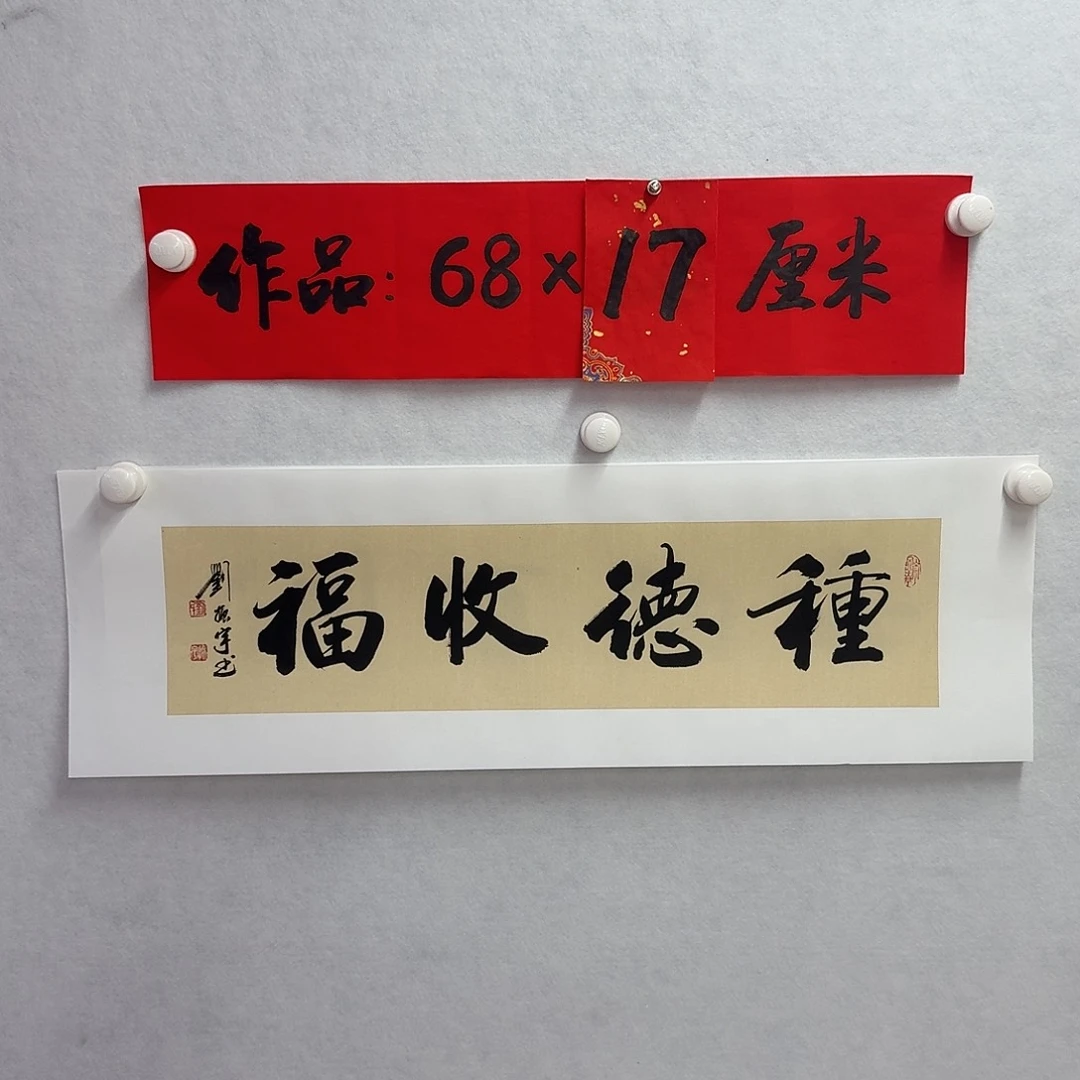 作品:68×17厘米
種德收福
劉振宇书